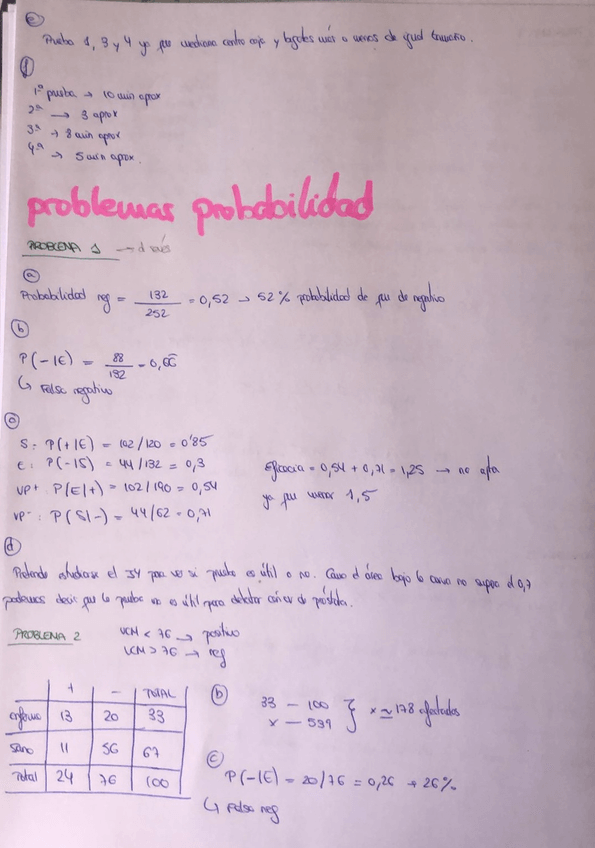 e
Prueba 1, 3 y 4 ya que mediana centro caja y bigotes más o menos de igual tamaño.
f
1ª prueba → 10 min aprox
2ª → 3 aprox
3ª → 8 min aprox
4ª → 5 min aprox.
problemas probabilidad
PROBLEMA 1 →
a
Probabilidad neg = 132 / 252 = 0,52 → 52% probabilidad de que de negativo
b
P(-1E) = 88 / 132 = 0,66
↳ Falso negativo
c
S: P(+1E) = 102/120 = 0'85
E: P(-1S) = 44/132 = 0,3
VP+: P(E/+) = 102/190 = 0,54
VP-: P(S/-) = 44/62 = 0,71
Eficacia = 0,54 + 0,71 = 1,25 → no apta
ya que menor 1,5
d
Pretende estudiarse el 34 para ver si prueba es útil o no. Como el área bajo la curva no supera el 0,7
podemos decir que la prueba no es útil para detectar cáncer de próstata.
PROBLEMA 2
VCM < 76 → positivo
VCM > 76 → neg
+ - TOTAL
enfermo 13 20 33
sano 11 56 67
Total 24 76 100
b
33 — 100
x — 539
} x ≃ 178 afectados
c
P(-1E) = 20/76 = 0,26 → 26%
↳ Falso neg